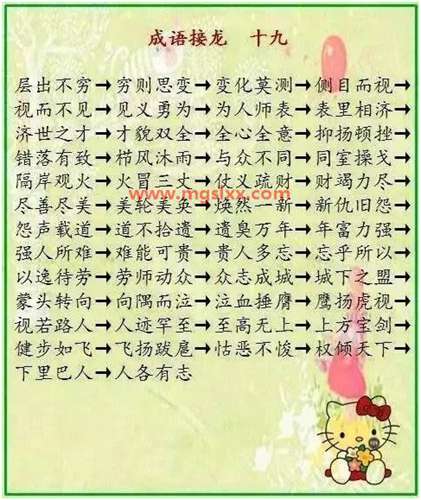 成语接龙 十九
层出不穷→穷则思变→变化莫测→侧目而视→
视而不见→见义勇为→为人师表→表里相济→
济世之才→才貌双全→全心全意→抑扬顿挫→
错落有致→栉风沐雨→与众不同→同室操戈→
隔岸观火→火冒三丈→仗义疏财→财竭力尽→
www.mgslxx.com
尽善尽美→美轮美奂→焕然一新→新仇旧怨→
怨声载道→道不拾遗→遗臭万年→年富力强→
强人所难→难能可贵→贵人多忘→忘乎所以→
以逸待劳→劳师动众→众志成城→城下之盟→
蒙头转向→向隅而泣→泣血捶膺→鹰扬虎视→
视若路人→人迹罕至→至高无上→上方宝剑→
健步如飞→飞扬跋扈→怙恶不悛→权倾天下→
下里巴人→人各有志